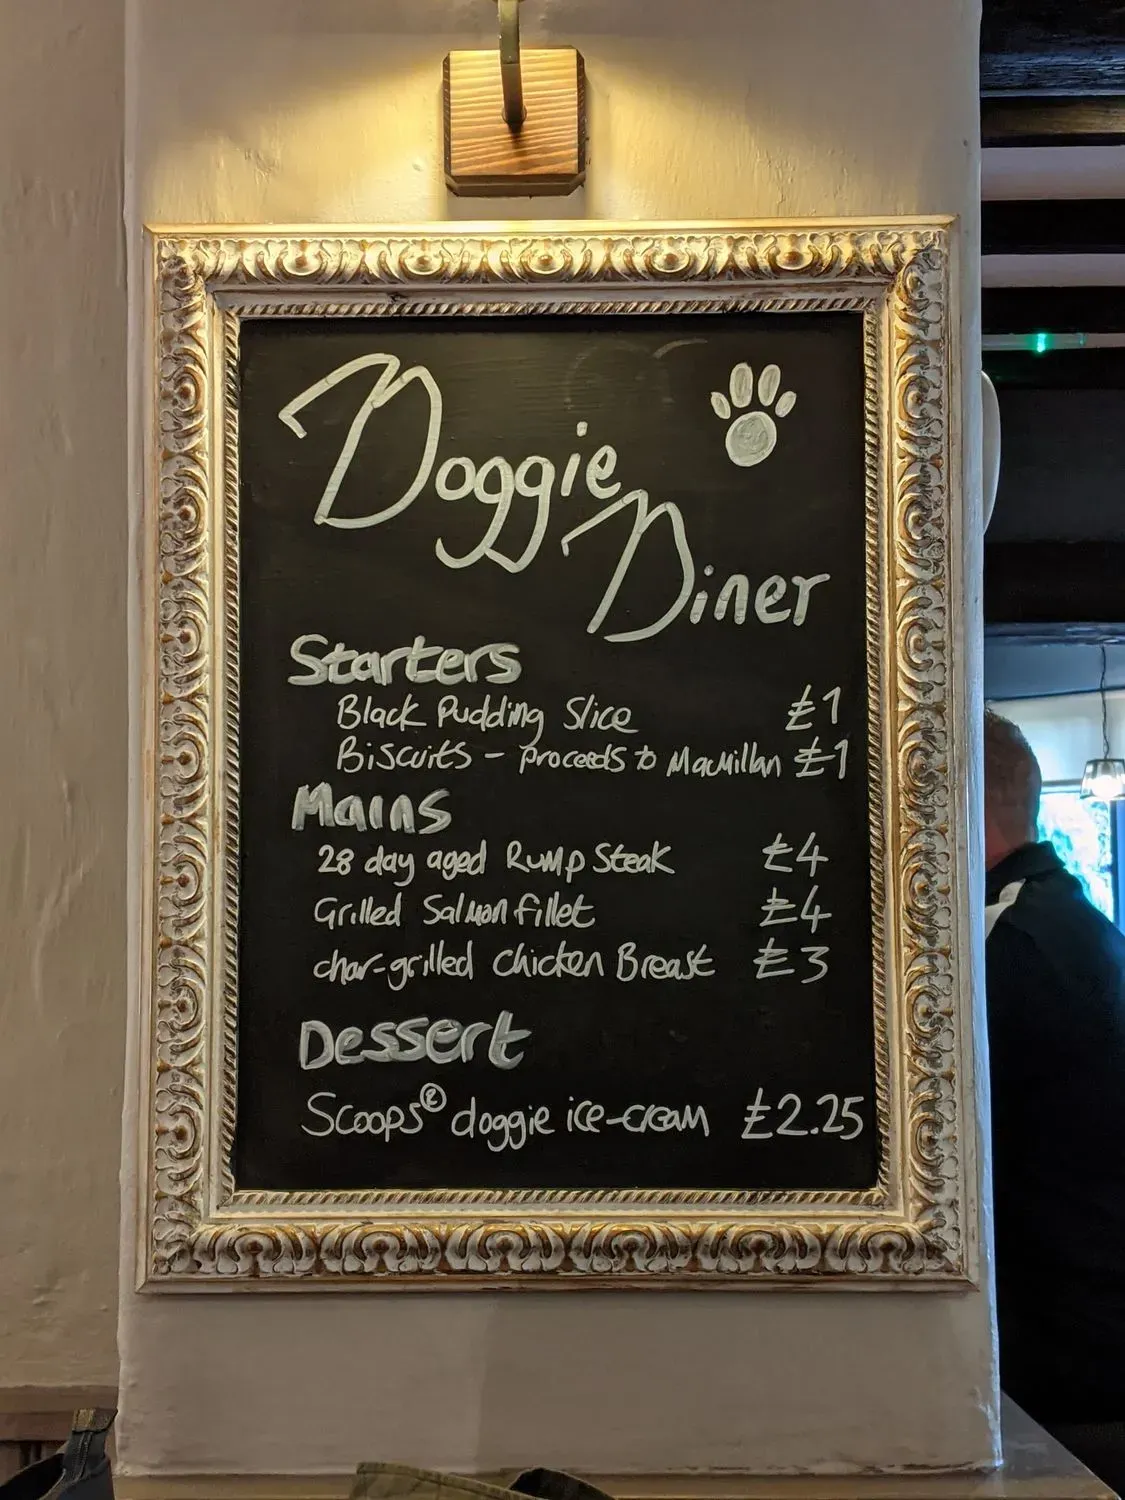 Doggie
Diner
Starters
Black Pudding Slice £1
Biscuits - proceeds to Macmillan £1
Mains
28 day aged Rump Steak £4
Grilled Salmon fillet £4
char-grilled Chicken Breast £3
Dessert
Scoops® doggie ice-cream £2.25